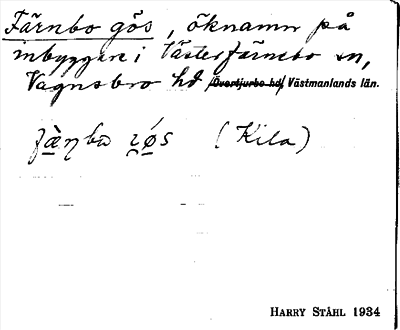 Färnbo gös, öknamn på
inbyggare i Västerfärnebo sn,
Vagnsbro hd /Övertjurbo hd/ Västmanlands län.
fæ̀ŋbω ɩǿs (Kila)
HARRY STÅHL 1934